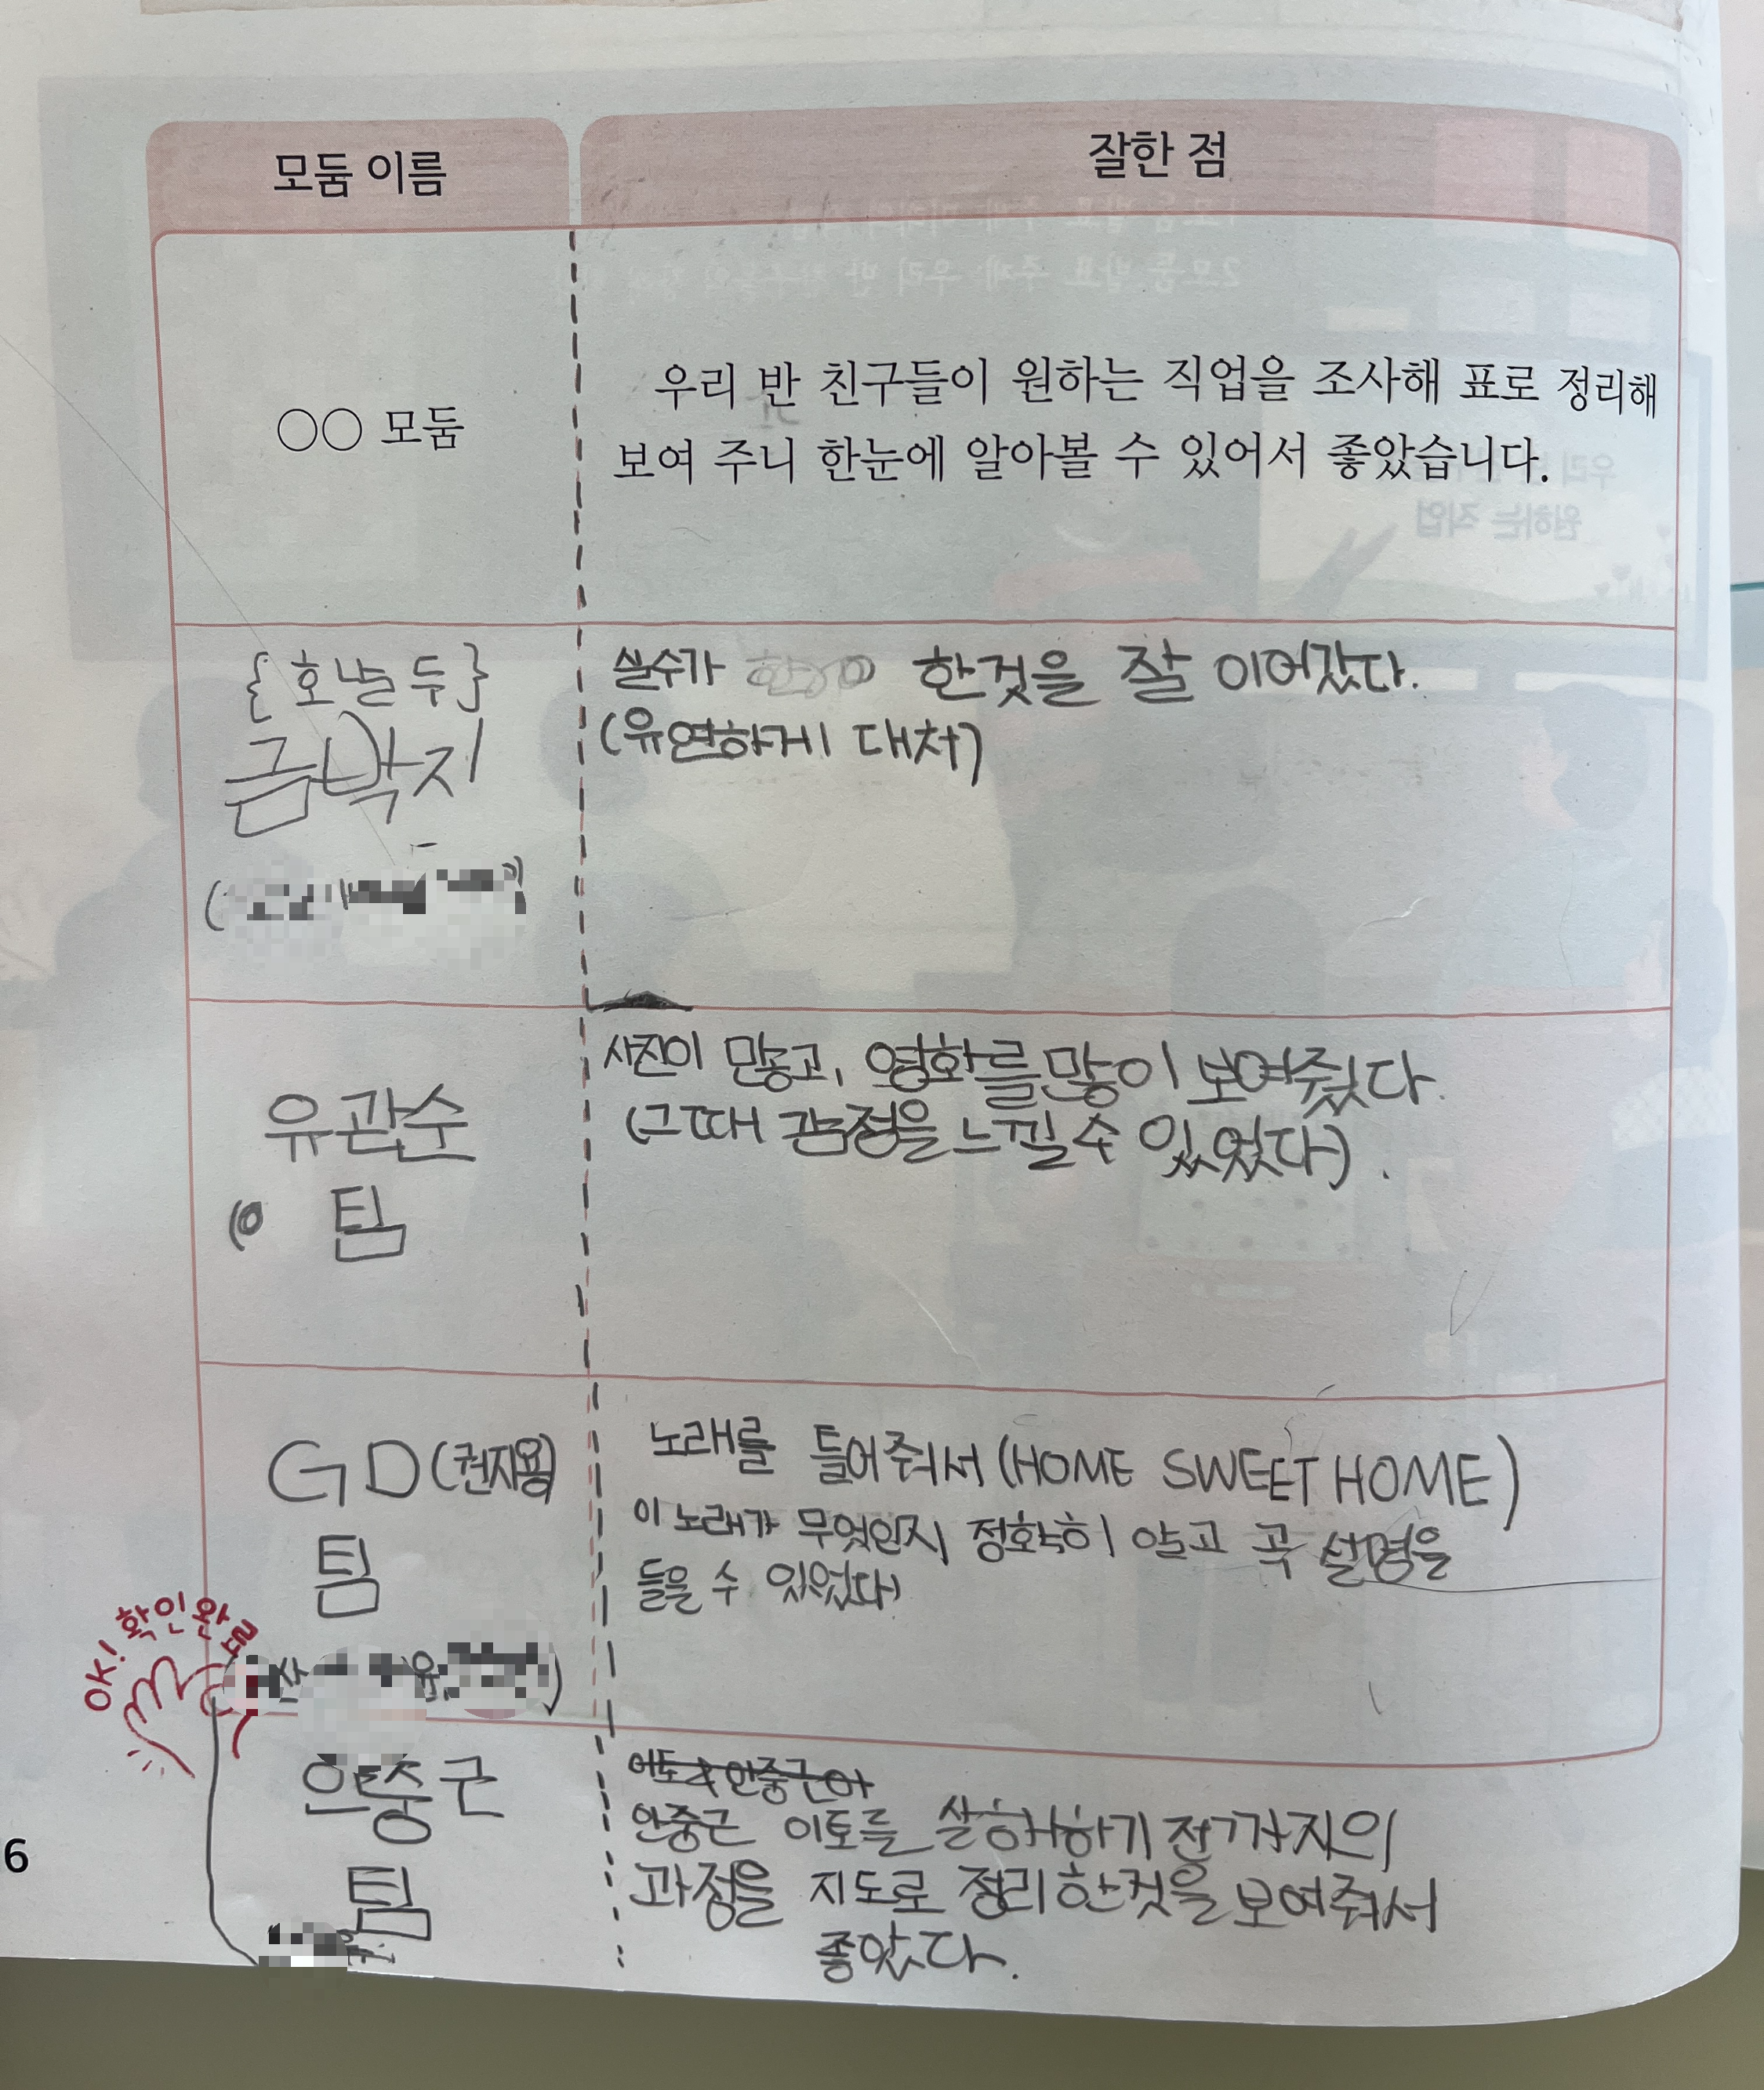 모둠 이름
잘한 점
○○ 모둠
우리 반 친구들이 원하는 직업을 조사해 표로 정리해
보여 주니 한눈에 알아볼 수 있어서 좋았습니다.
{호날두}
금박지
실수가 한것을 잘 이어갔다.
(유연하게 대처)
유관순
팀
사진이 많고, 영화를 많이 보여줬다.
(그때 감정을 느낄 수 있었다).
GD(권지용)
팀
노래를 틀어줘서 (HOME SWEET HOME)
이 노래가 무엇인지 정확히 알고 곡 설명을
들을 수 있었다)
OK! 확인완료
안중근
팀
안중근 이토를 살해하기 전까지의
과정을 지도로 정리한것을 보여줘서
좋았다.
6